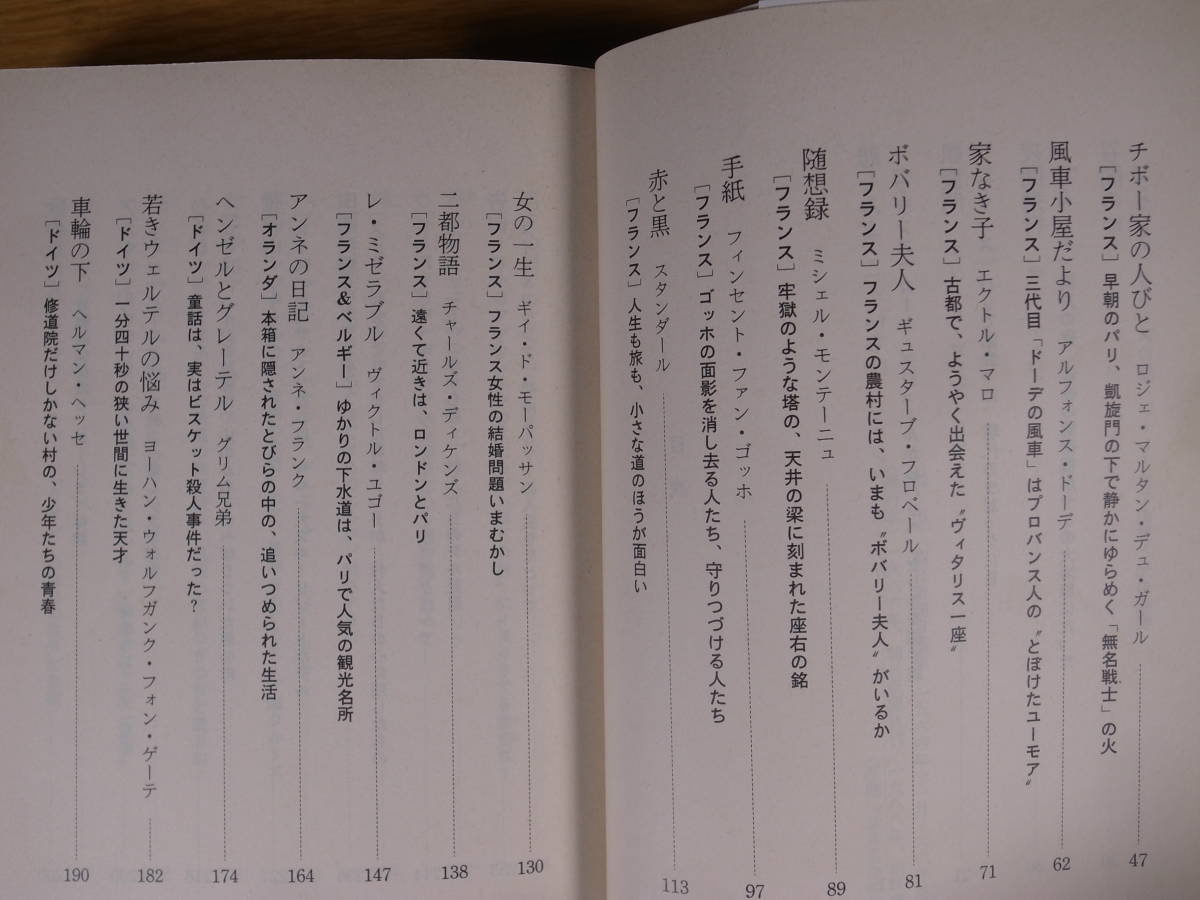 チボー家の人びと ロジェ・マルタン・デュ・ガール 47
［フランス］早朝のパリ、凱旋門の下で静かにゆらめく「無名戦士」の火
風車小屋だより アルフォンス・ドーデ 62
［フランス］三代目「ドーデの風車」はプロバンス人の〝とぼけたユーモア〟
家なき子 エクトル・マロ 71
［フランス］古都で、ようやく出会えた〝ヴィタリス一座〟
ボバリー夫人 ギュスターブ・フロベール 81
［フランス］フランスの農村には、いまも〝ボバリー夫人〟がいるか
随想録 ミシェル・モンテーニュ 89
［フランス］牢獄のような塔の、天井の梁に刻まれた座右の銘
手紙 フィンセント・ファン・ゴッホ 97
［フランス］ゴッホの面影を消し去る人たち、守りつづける人たち
赤と黒 スタンダール 113
［フランス］人生も旅も、小さな道のほうが面白い
女の一生 ギイ・ド・モーパッサン 130
［フランス］フランス女性の結婚問題いまむかし
二都物語 チャールズ・ディケンズ 138
［フランス］遠くて近きは、ロンドンとパリ
レ・ミゼラブル ヴィクトル・ユゴー 147
［フランス&ベルギー］ゆかりの下水道は、パリで人気の観光名所
アンネの日記 アンネ・フランク 164
［オランダ］本箱に隠されたとびらの中の、追いつめられた生活
ヘンゼルとグレーテル グリム兄弟 174
［ドイツ］童話は、実はビスケット殺人事件だった？
若きウェルテルの悩み ヨーハン・ウォルフガンク・フォン・ゲーテ 182
［ドイツ］一分四十秒の狭い世間に生きた天才
車輪の下 ヘルマン・ヘッセ 190
［ドイツ］修道院だけしかない村の、少年たちの青春